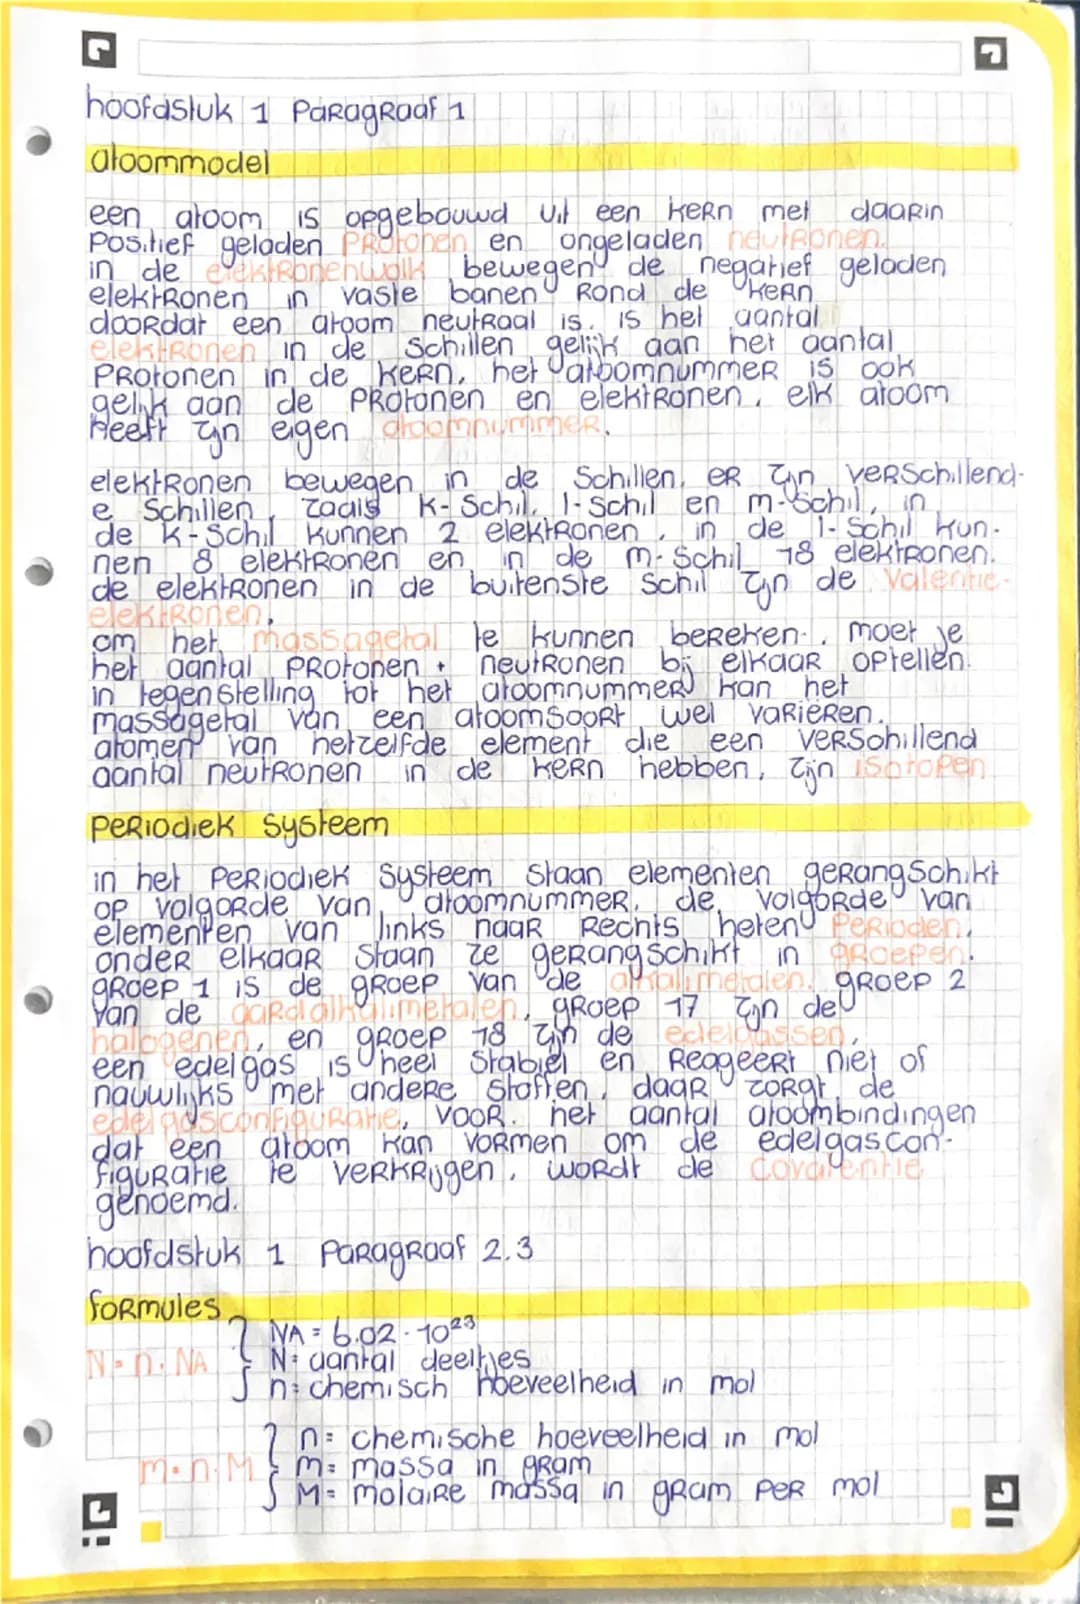 hoofdstuk 1 Paragraaf 1
atoommodel
een atoom is opgebouwd uit een kern met daarin
Positief geladen Protonen en ongeladen neutronen.
in de elektronenwolk bewegen de negatief geladen
elektronen in vaste banen rond de kern
doordat een atoom neutraal is. is het aantal
elektronen in de schillen gelijk aan het aantal
Protonen in de kern. het atoomnummer is ook
gelijk aan de Protonen en elektronen. elk atoom
heeft zijn eigen atoomnummer.
elektronen bewegen in de Schillen. er zijn verschillend-
e Schillen, zoals K-Schil, l-Schil en m-Schil, in
de K-Schil kunnen 2 elektronen, in de l-Schil kun-
nen 8 elektronen en in de m-Schil 18 elektronen.
de elektronen in de buitenste schil zijn de valentie-
elektronen.
om het massagetal te kunnen bereken., moet je
het aantal Protonen + neutronen bij elkaar optellen.
in tegenstelling tot het atoomnummer kan het
massagetal van een atoomsoort wel variëren.
atomen van hetzelfde element die een verschillend
aantal neutronen in de kern hebben, zijn isotopen
Periodiek Systeem
in het Periodiek Systeem staan elementen gerangschikt
op volgorde van atoomnummer. de volgorde van
elementen van links naar Rechts heten Perioden.
onder elkaar staan ze gerangschikt in groepen.
groep 1 is de groep van de alkalimetalen. groep 2
van de aardalkalimetalen, groep 17 zijn de
halogenen, en groep 18 zijn de edelgassen.
een edelgas is heel stabiel en Reageert niet of
nauwlijks met andere stoffen, daar zorgt de
edelgasconfiguratie, voor. het aantal atoombindingen
dat een atoom kan vormen om de edelgascon-
figuratie te verkrijgen, wordt de Covalentie
genoemd.
hoofdstuk 1 Paragraaf 2.3
formules
NA = 6.02 · 10²³
N = n · NA
N = aantal deeltjes
n = chemisch hoeveelheid in mol
n = chemische hoeveelheid in mol
m = n · M
m = massa in gram
M = molaire massa in gram per mol